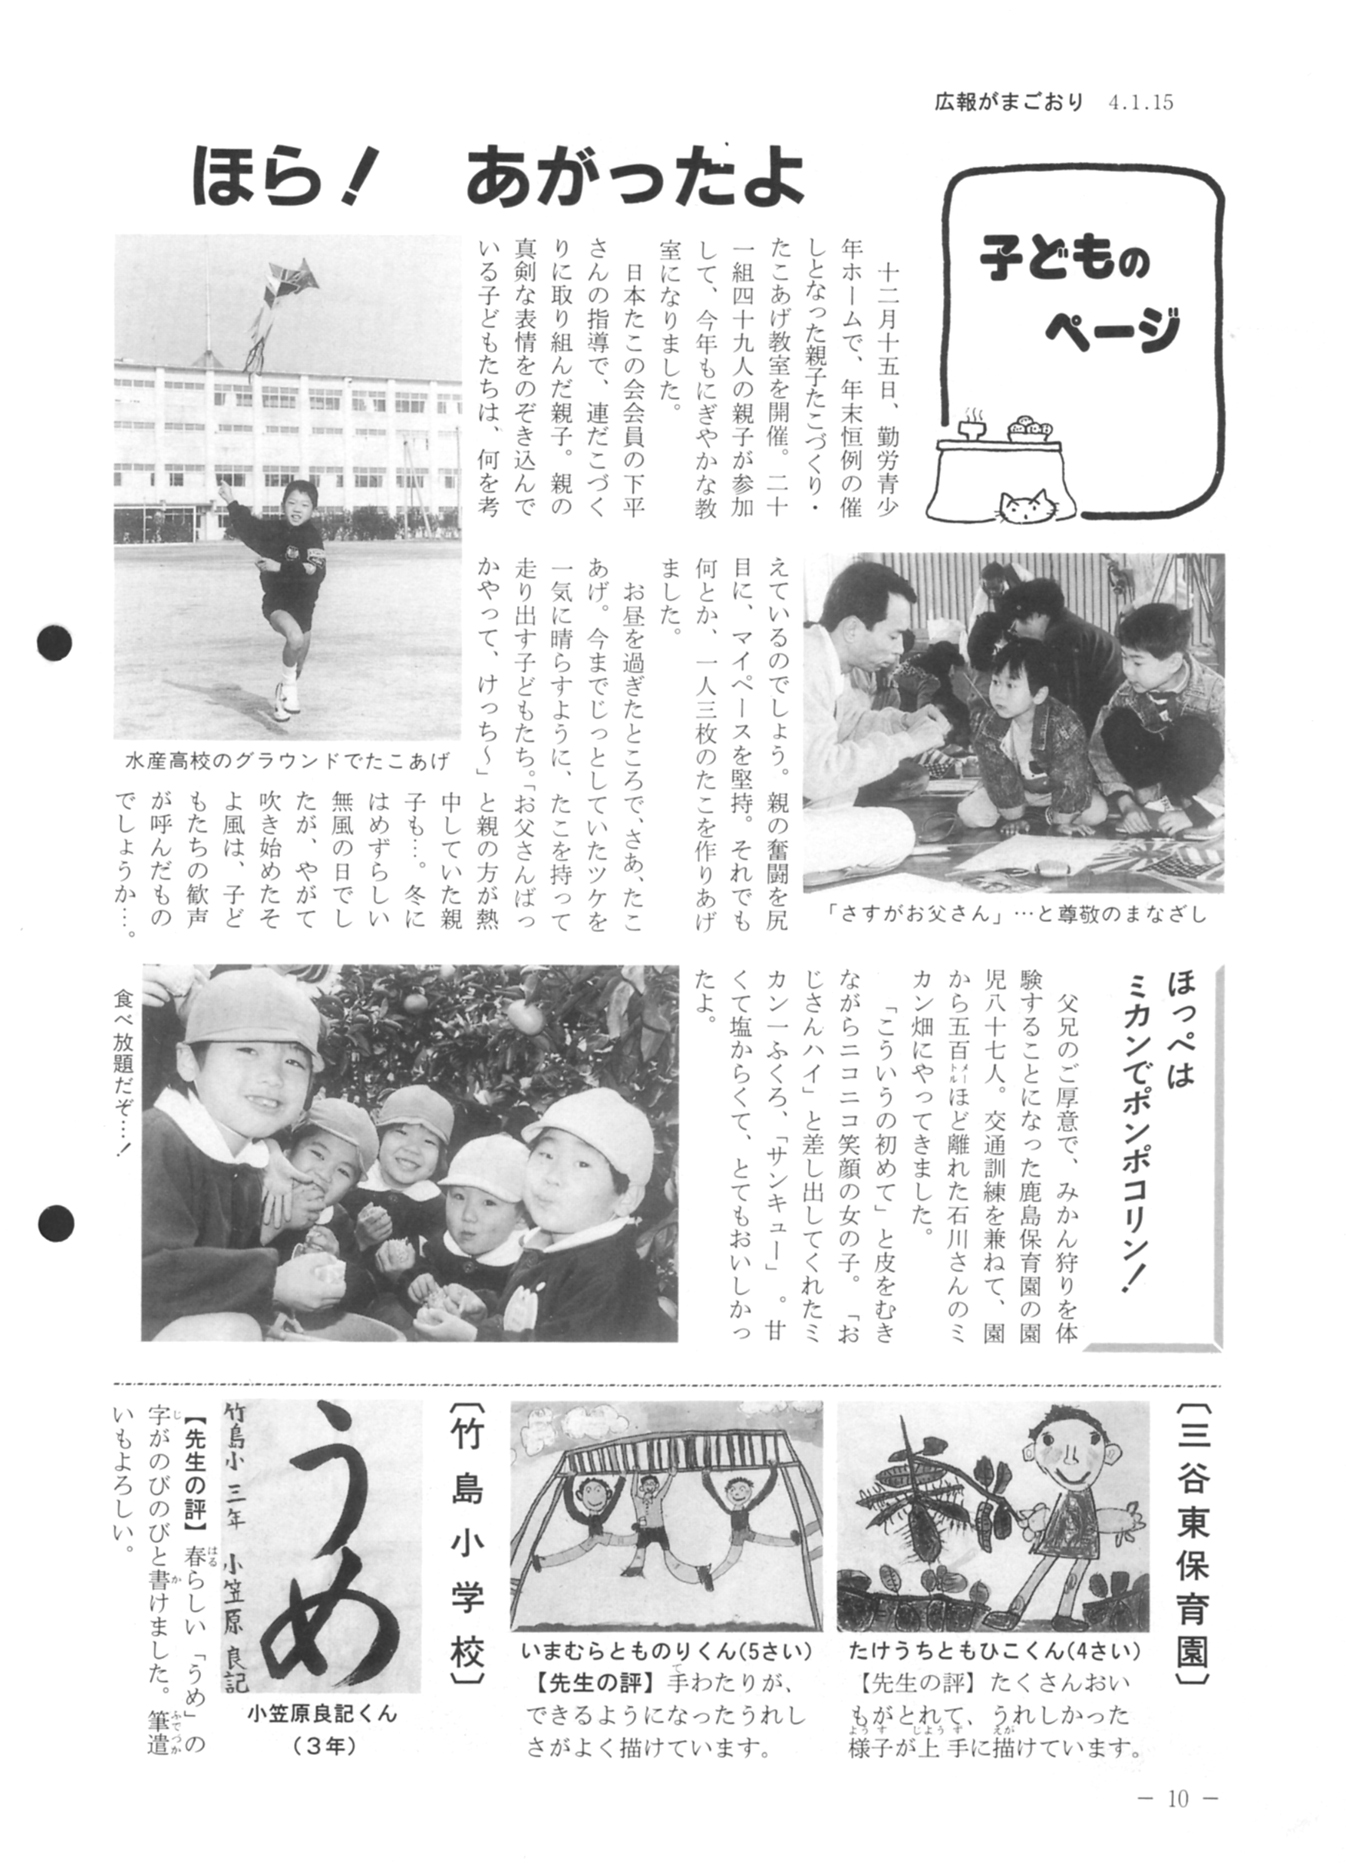 広報がまごおり 4.1.15
子どもの
ページ
ほら！ あがったよ
十二月十五日、勤労青少
年ホームで、年末恒例の催
しとなった親子たこづくり・
たこあげ教室を開催。二十
一組四十九人の親子が参加
して、今年もにぎやかな教
室になりました。
日本たこの会会員の下平
さんの指導で、連だこづく
りに取り組んだ親子。親の
真剣な表情をのぞき込んで
いる子どもたちは、何を考
えているのでしょう。親の奮闘を尻
目に、マイペースを堅持。それでも
何とか、一人三枚のたこを作りあげ
ました。
お昼を過ぎたところで、さあ、たこ
あげ。今までじっとしていたツケを
一気に晴らすように、たこを持って
走り出す子どもたち。「お父さんばっ
かやって、けっち〜」と親の方が熱
中していた親
子も…。冬に
はめずらしい
無風の日でし
たが、やがて
吹き始めたそ
よ風は、子ど
もたちの歓声
が呼んだもの
でしょうか…。
水産高校のグラウンドでたこあげ
「さすがお父さん」…と尊敬のまなざし
ほっぺは
ミカンでポンポコリン！
父兄のご厚意で、みかん狩りを体
験することになった鹿島保育園の園
児八十七人。交通訓練を兼ねて、園
から五百メートルほど離れた石川さんのミ
カン畑にやってきました。
「こういうの初めて」と皮をむき
ながらニコニコ笑顔の女の子。「お
じさんハイ」と差し出してくれたミ
カン一ふくろ、「サンキュー」。甘
くて塩からくて、とてもおいしかっ
たよ。
食べ放題だぞ…！
〔三谷東保育園〕
たけうちともひこくん(4さい)
【先生の評】たくさんおい
もがとれて、うれしかった
様子が上手に描けています。
いまむらとものりくん(5さい)
【先生の評】手わたりが、
できるようになったうれし
さがよく描けています。
〔竹島小学校〕
うめ
竹島小 三年 小笠原良記
小笠原良記くん
(３年)
【先生の評】春らしい「うめ」の
字がのびのびと書けました。筆遣
いもよろしい。
－ 10 －